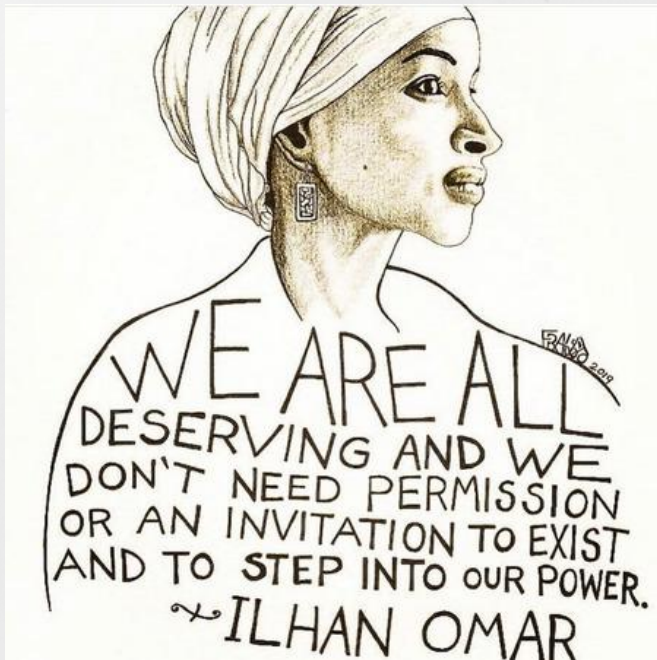 WE ARE ALL
DESERVING AND WE
DON'T NEED PERMISSION
OR AN INVITATION TO EXIST
AND TO STEP INTO OUR POWER.
~ILHAN OMAR
2019